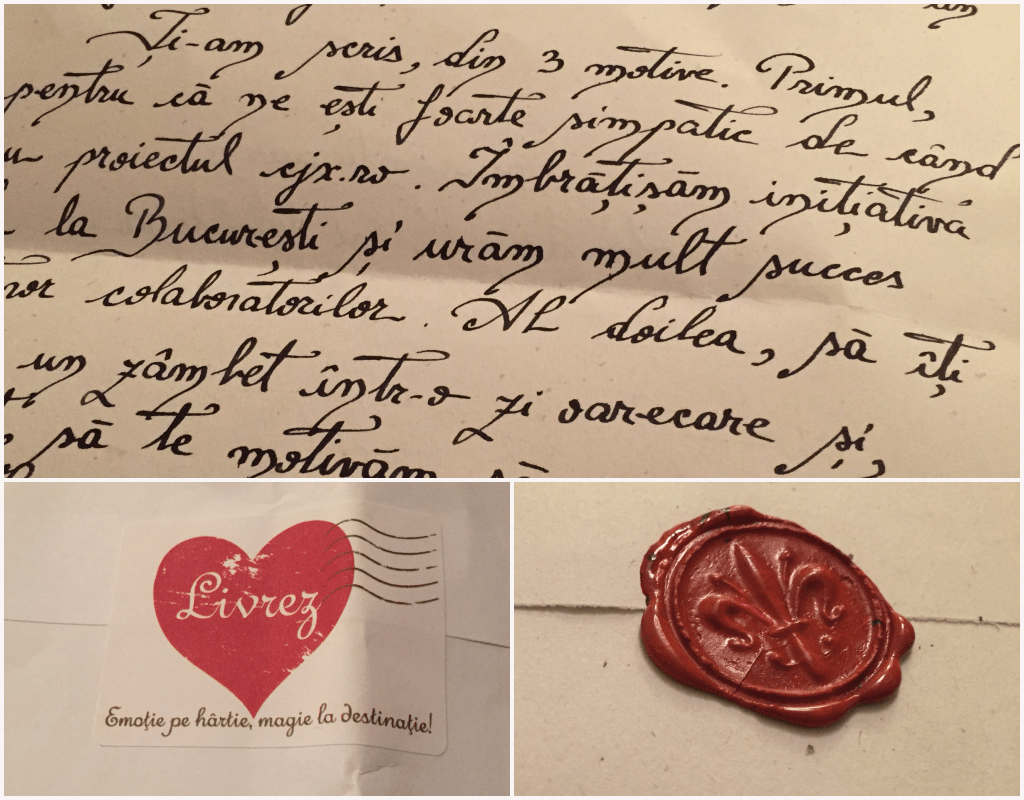 Ți-am scris, din 3 motive. Primul,
pentru că ne ești foarte simpatic de când
proiectul cjx.ro. Îmbrățișăm inițiativa
la București și urăm mult succes
colaboratorilor. Al doilea, să îți
un zâmbet într-o zi oarecare și,
să te motivăm să
Livrez
Emoție pe hârtie, magie la destinație!